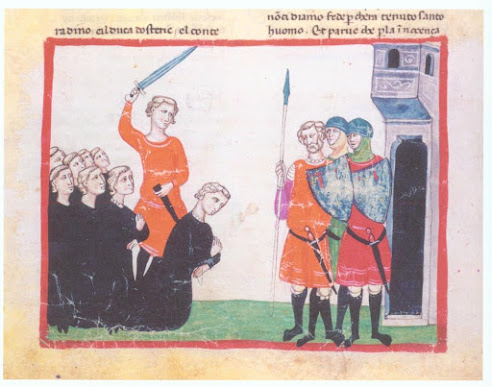 radino, cilduca dosteric, el conte
nõci diamo fede p chera tenuto santo
huomo. Et parue che pla innocença